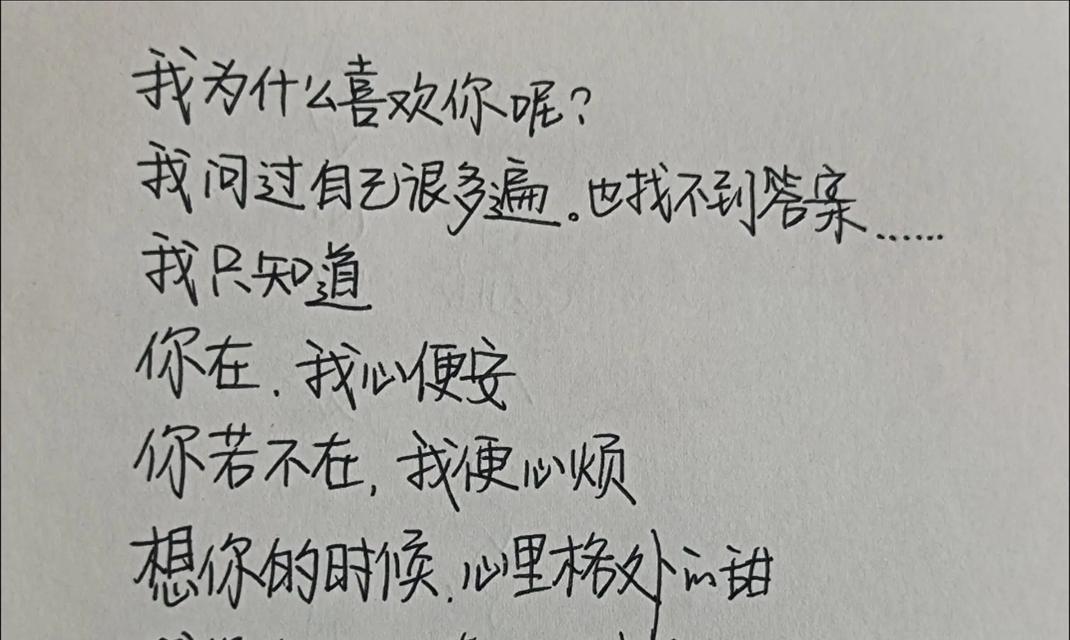 我为什么喜欢你呢?
我问过自己很多遍。也找不到答案......
我只知道
你在.我心便安
你若不在,我便心烦
想你的时候.心里格外的甜